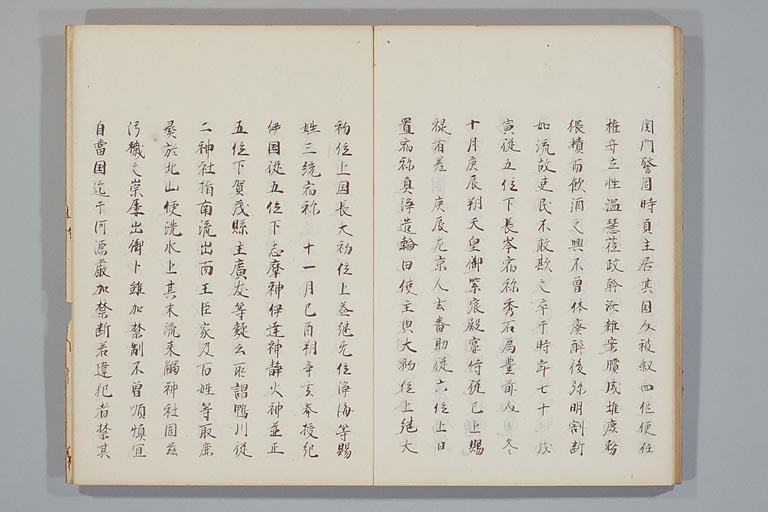 関門警固時頁主居其国及被叙四位便任
権守立性温慧莅政幹済雑案牘成堆庶務
猥積而飲酒之興不曽休廃酔後弥明割断
如流故吏民不敢欺之卒于時年七十 戊
寅従五位下長岑宿祢秀名為豊前守 冬
十月庚辰朔天皇御紫宸殿宴侍従已上賜
禄有差 庚辰左京人玄蕃助従六位上日
置宿祢真浄造輪田使主典大初位上継大
初位上国長大初位上益継无位浄海等賜
姓三統宿祢 十一月己酉朔辛亥奉授紀
伊国従五位下志摩神伊達神静火神並正
五位下賀茂縣主廣友等疑云所謂鴨川従
二神社指南流出而王臣家及百姓等取鹿
𢈘於北山便洗水上其末流来触神社因茲
汚穢之祟屡出御卜雖加禁制不曽順慎宜
自當国迄于河源厳加禁断若違犯者禁其